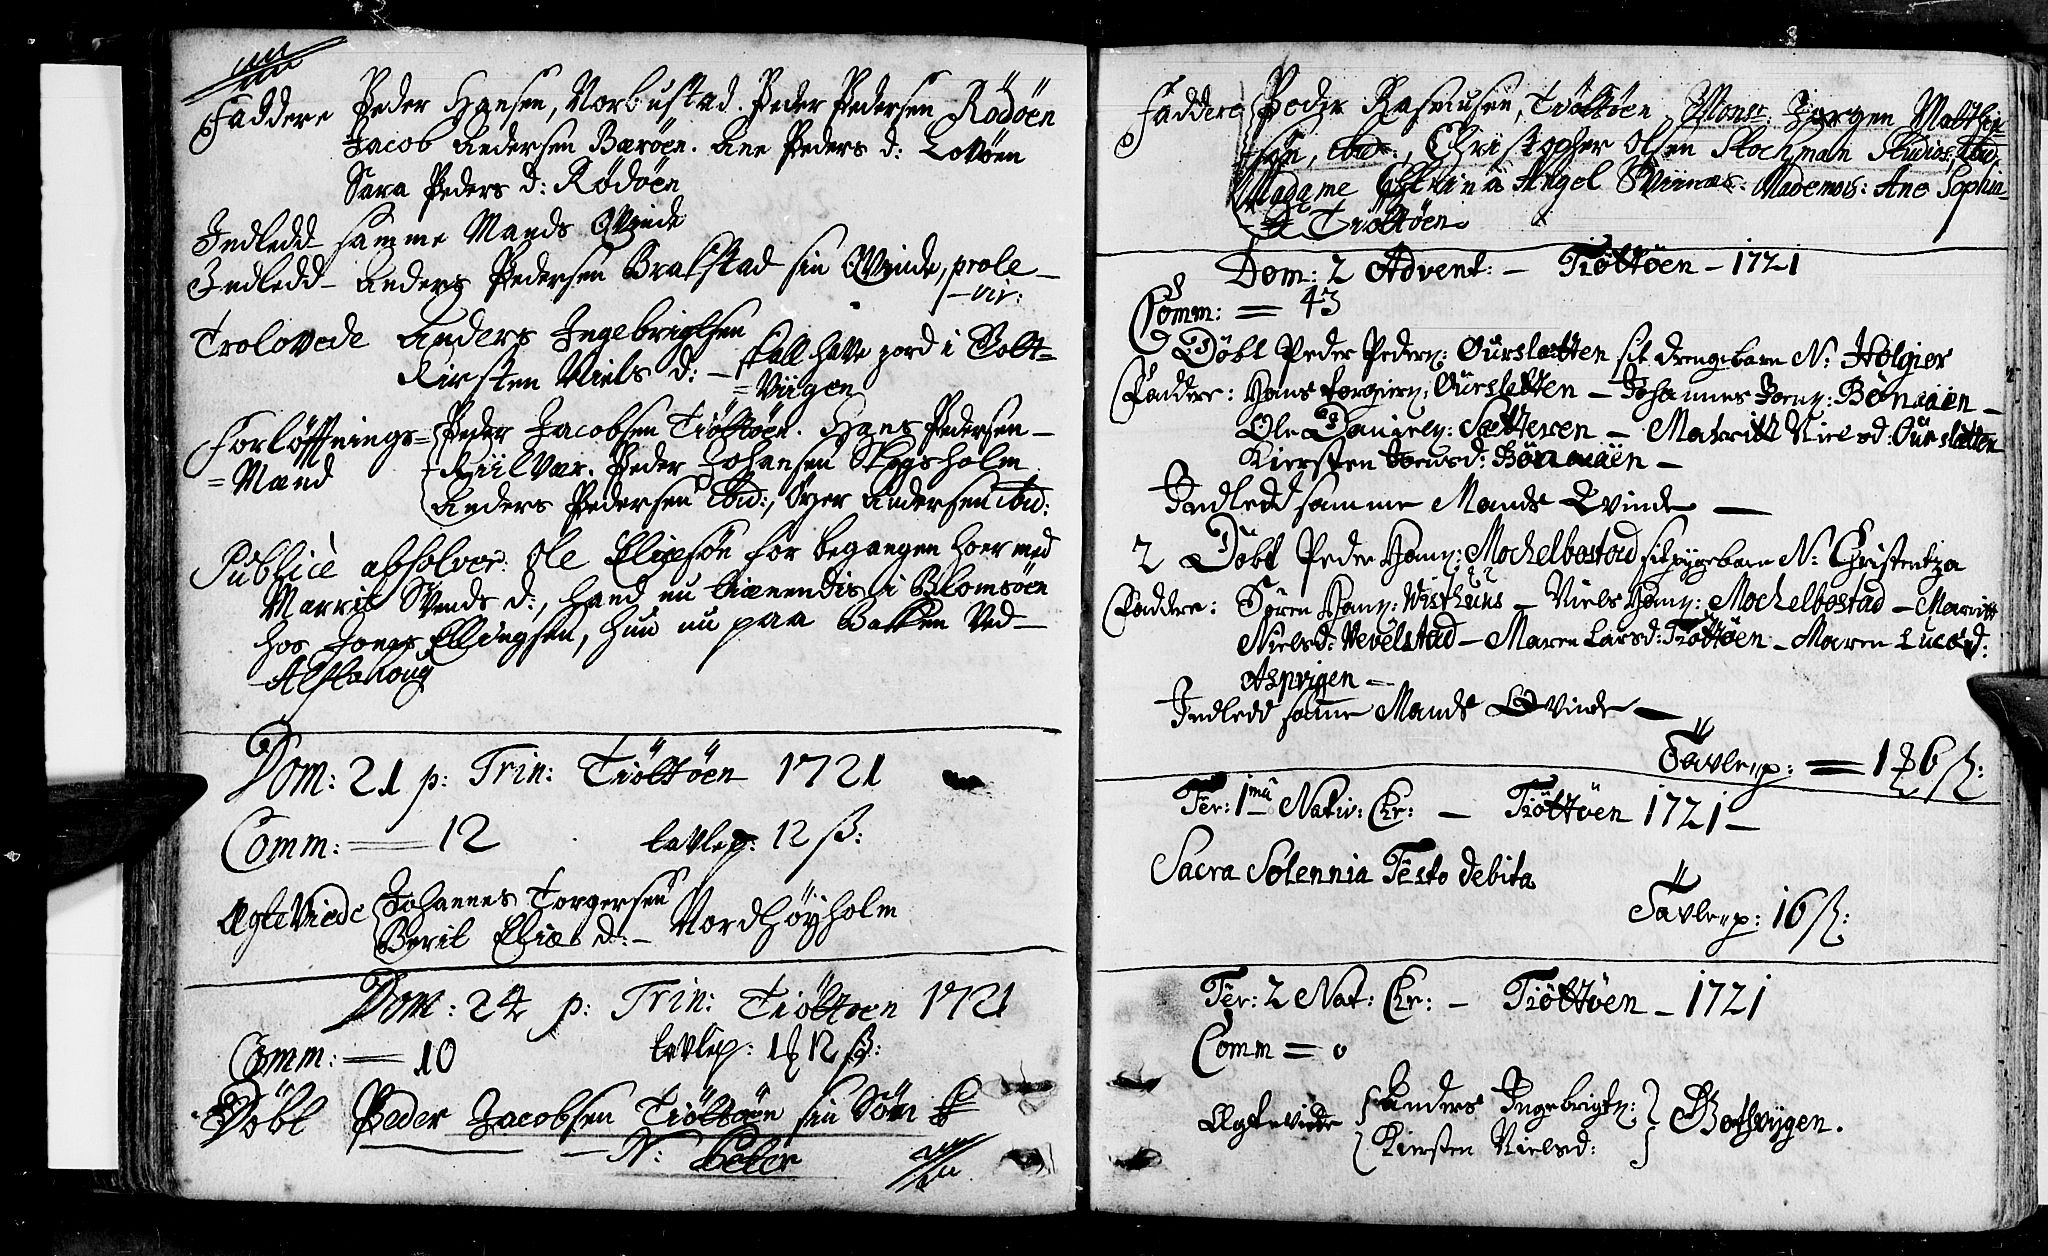 Faddere Peder Hansen, Norbustad. Peder Pedersen Rödöen
Jacob Andersen Bæröen. Ane Peders d: Lovöen
Sara Peders d: Rödöen
Indledd samme Mands Qvinde
Indledd Anders Pedersen Brasstad sin Qvinde, prole
vir:
Trolovede Anders Ingebrigtsen
Kirsten Niels d: – skall have jord i Bolt=
=Viigen
Forlöffnings= Peder Jacobsen Tiöttöen. Hans Pedersen –
=Mænd Riilvær. Peder Johansen Skogsholm
Anders Pedersen ibid:, Andersen ibid:
Publicè absolver: Ole Eliæsön for begangen hoer med
Marrit Svends d:, hand nu tienendis i Blomsöen
hos Jonas Ellingsen, hun nu paa Bakken ved
Alstahoug
Dom: 21 p: Trin: Tiöttöen 1721
Comm: = 12 tavlep: 12 ß:
Ægteviede Johannes Torgersen
Berit Eliæ d: – Nordhöyholm
Dom: 24 p: Trin: Tiöttoen 1721
Comm: = 10 tavlep: 1 12 ß:
Döbt Peder Jacobsen Tiöttöen sin Sön
– N: Peter
Faddere Peder Rasmusen, Tiöttöen Mons: Jörgen Matthie
sön, ibid:, Christopher Olsen Stochman Studios: ibid,
Madame Christina Angel Sviinæs: Mademois: Ane Sophia
Tiöttöen
Dom: 2 Advent: – Tiöttöen – 1721
Comm: = 43
Döbt Peder Peders: Ourslætten sit drengebarn N: Holgier
Faddere: Hans Torgiers: Ourslætten – Johannes Joens: Bönaaen –
Ole Daniels: Sætteren – Marritt Nielsd: Ourslætten
Kiersten Joensd: Bönaaen –
Indledd samme Mands Qvinde –
2 Döbt Peder Hans: Mochelbostad sit pigebarn N: Christentza
Faddere: Sören Hans: Wisthuus – Niels Hans: Mochelbostad – Maritt
Nielsd: Vevelstad – Maren Larsd: Tiöttöen – Maren Lucasd:
Aspvigen –
Indledd samme Mands Qvinde –
Tavlep: = 1 6 ß:
Fer: 1mâ Nativ: Chr: – Tiöttöen 1721 –
Sacra Solennia Festo debita
Tavlep: 16 ß:
Fer: 2 Nat: Chr: – Tiöttöen – 1721
Comm = 0
Ægteviede Anders Ingebrigts: Botsvigen.
Kiersten Nielsd: